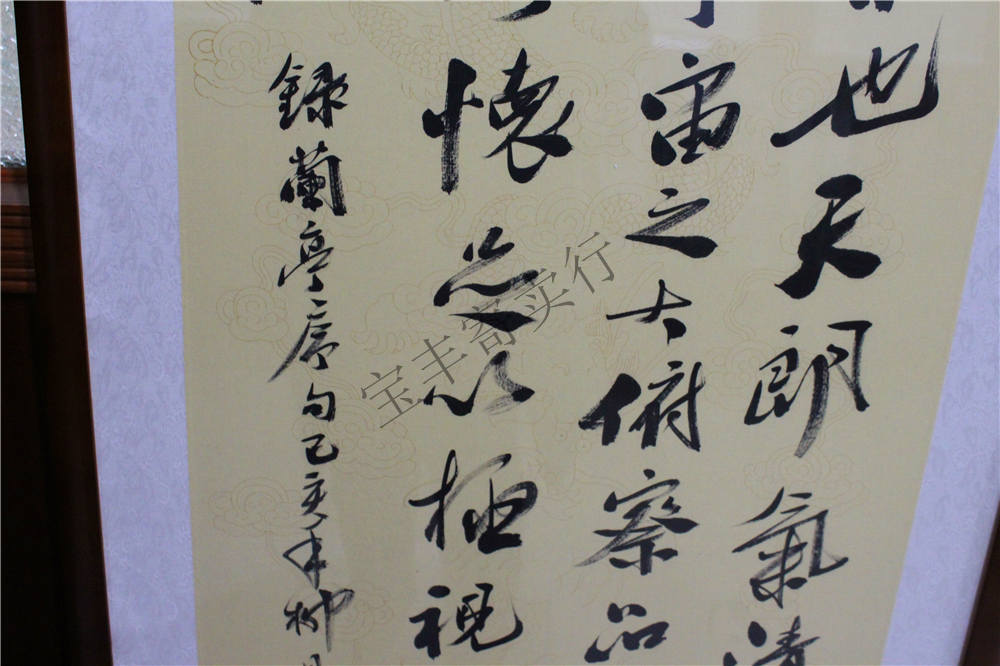 也天朗氣清
宙之大俯察品
懷足以極視
錄蘭亭序句己亥年柳月
宝丰寄卖行